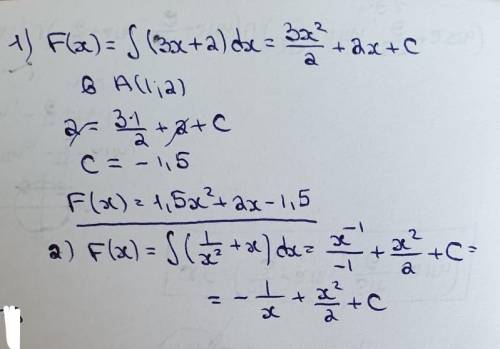 1) F(x) = ∫ (3x+2) dx = 3x²/2 + 2x + C
в A(1;2)
2 = 3·1/2 + 2 + C
C = -1,5
F(x) = 1,5x² + 2x - 1,5
2) F(x) = ∫ (1/x² + x) dx = x⁻¹/-1 + x²/2 + C =
= - 1/x + x²/2 + C